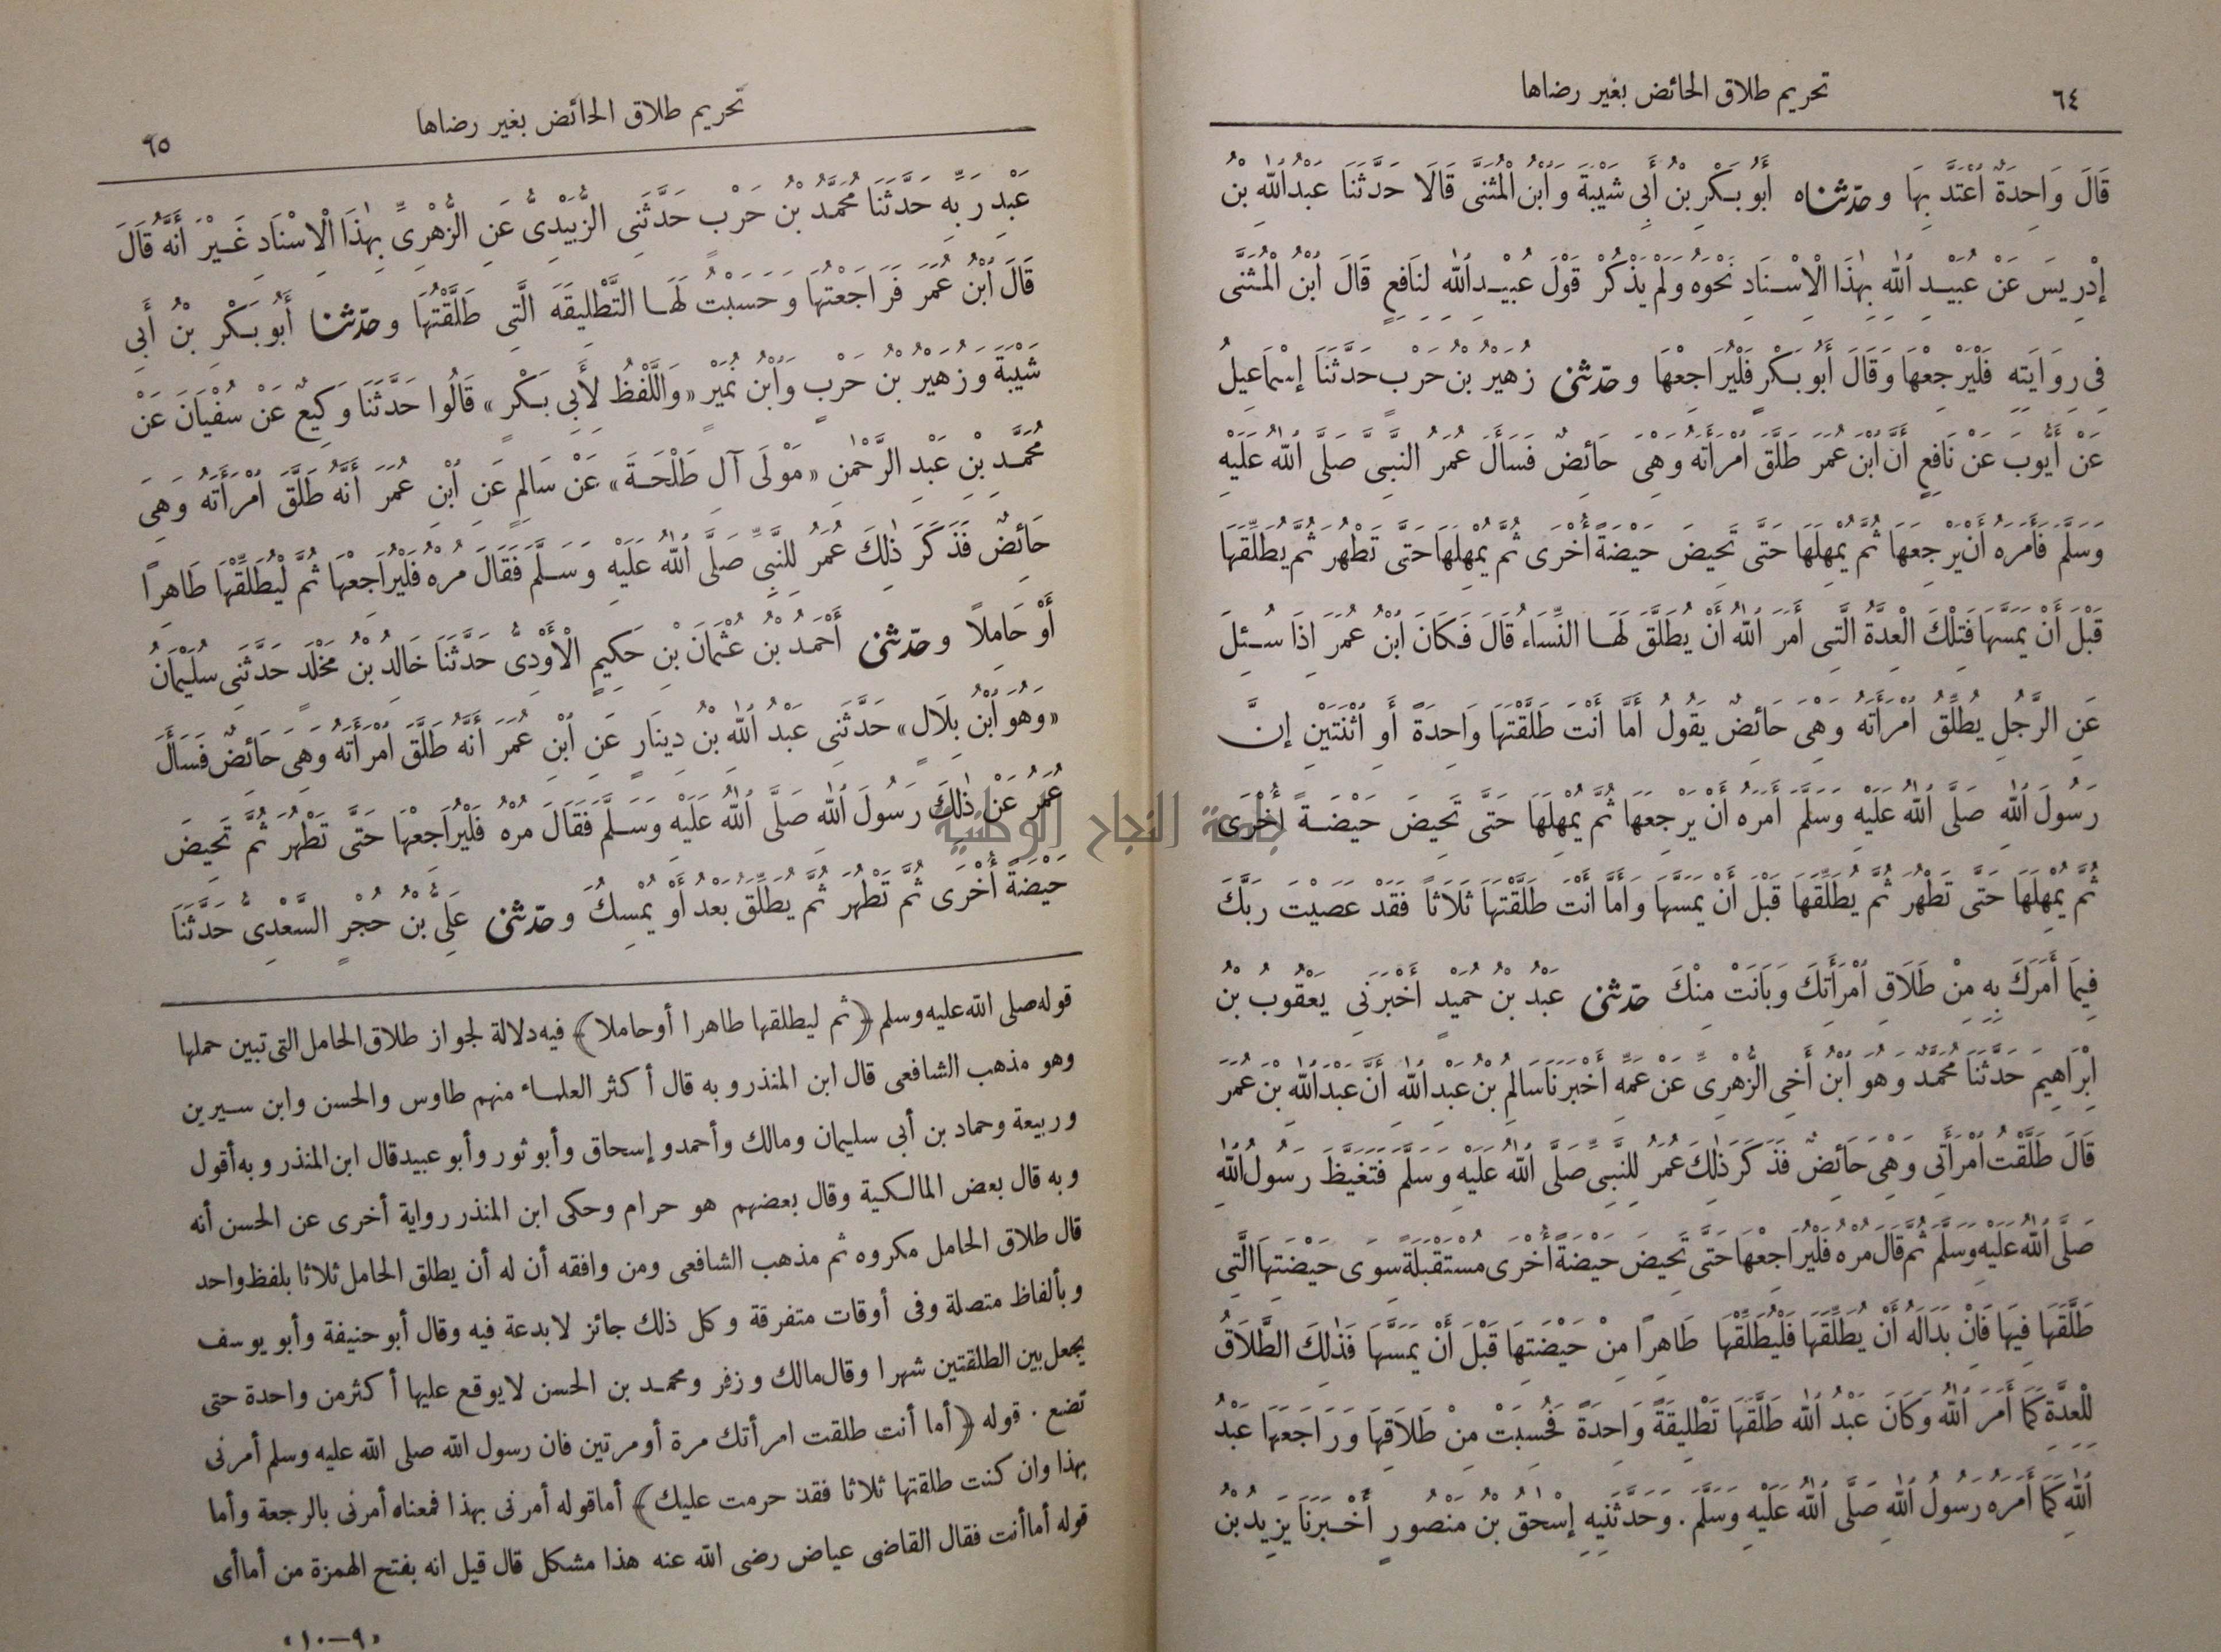 ٦٤
تحريم طلاق الحائض بغير رضاها
قَالَ وَاحِدَةٌ اعْتَدَّ بِهَا وحَدَّثَنَاه أَبُو بَكْرِ بْنُ أَبِى شَيْبَةَ وَابْنُ الْمُثَنَّى قَالَا حَدَّثَنَا عَبْدُ اللهِ بْنُ
إِدْرِيسَ عَنْ عُبَيْدِ اللهِ بِهٰذَا الْاِسْنَادِ نَحْوَهُ وَلَمْ يَذْكُرْ قَوْلَ عُبَيْدِ اللهِ لِنَافِعٍ قَالَ ابْنُ الْمُثَنَّى
فِى رِوَايَتِهِ فَلْيَرْجِعْهَا وَقَالَ أَبُو بَكْرٍ فَلْيُرَاجِعْهَا وحَدَّثَنِى زُهَيْرُ بْنُ حَرْبٍ حَدَّثَنَا إِسْمَاعِيلُ
عَنْ أَيُّوبَ عَنْ نَافِعٍ أَنَّ ابْنَ عُمَرَ طَلَّقَ امْرَأَتَهُ وَهْىَ حَائِضٌ فَسَأَلَ عُمَرُ النَّبِىَّ صَلَّى اللهُ عَلَيْهِ
وَسَلَّمَ فَأَمَرَهُ أَنْ يَرْجِعَهَا ثُمَّ يُمْهِلَهَا حَتَّى تَحِيضَ حَيْضَةً أُخْرَى ثُمَّ يُمْهِلَهَا حَتَّى تَطْهُرَ ثُمَّ يُطَلِّقَهَا
قَبْلَ أَنْ يَمَسَّهَا فَتِلْكَ الْعِدَّةُ الَّتِى أَمَرَ اللهُ أَنْ يُطَلَّقَ لَهَا النِّسَاءُ قَالَ فَكَانَ ابْنُ عُمَرَ اذَا سُئِلَ
عَنِ الرَّجُلِ يُطَلِّقُ امْرَأَتَهُ وَهْىَ حَائِضٌ يَقُولُ أَمَّا أَنْتَ طَلَّقْتَهَا وَاحِدَةً أَوِ اثْنَتَيْنِ إِنَّ
رَسُولَ اللهِ صَلَّى اللهُ عَلَيْهِ وَسَلَّمَ أَمَرَهُ أَنْ يَرْجِعَهَا ثُمَّ يُمْهِلَهَا حَتَّى تَحِيضَ حَيْضَةً أُخْرَى
ثُمَّ يُمْهِلَهَا حَتَّى تَطْهُرَ ثُمَّ يُطَلِّقَهَا قَبْلَ أَنْ يَمَسَّهَا وَأَمَّا أَنْتَ طَلَّقْتَهَا ثَلَاثًا فَقَدْ عَصَيْتَ رَبَّكَ
فِيمَا أَمَرَكَ بِهِ مِنْ طَلَاقِ امْرَأَتِكَ وَبَانَتْ مِنْكَ حَدَّثَنِى عَبْدُ بْنُ حُمَيْدٍ أَخْبَرَنِى يَعْقُوبُ بْنُ
اِبْرَاهِيمَ حَدَّثَنَا مُحَمَّدٌ وَهُوَ ابْنُ أَخِى الزُّهْرِىِّ عَنْ عَمِّهِ أَخْبَرَنَا سَالِمُ بْنُ عَبْدِ اللهِ أَنَّ عَبْدَ اللهِ بْنَ عُمَرَ
قَالَ طَلَّقْتُ امْرَأَتِى وَهْىَ حَائِضٌ فَذَكَرَ ذٰلِكَ عُمَرُ لِلنَّبِىِّ صَلَّى اللهُ عَلَيْهِ وَسَلَّمَ فَتَغَيَّظَ رَسُولُ اللهِ
صَلَّى اللهُ عَلَيْهِ وَسَلَّمَ ثُمَّ قَالَ مُرْهُ فَلْيُرَاجِعْهَا حَتَّى تَحِيضَ حَيْضَةً أُخْرَى مُسْتَقْبَلَةً سِوَى حَيْضَتِهَا الَّتِى
طَلَّقَهَا فِيهَا فَانْ بَدَا لَهُ أَنْ يُطَلِّقَهَا فَلْيُطَلِّقْهَا طَاهِرًا مِنْ حَيْضَتِهَا قَبْلَ أَنْ يَمَسَّهَا فَذٰلِكَ الطَّلَاقُ
لِلْعِدَّةِ كَمَا أَمَرَ اللهُ وَكَانَ عَبْدُ اللهِ طَلَّقَهَا تَطْلِيقَةً وَاحِدَةً فَحُسِبَتْ مِنْ طَلَاقِهَا وَرَاجَعَهَا عَبْدُ
اللهِ كَمَا أَمَرَهُ رَسُولُ اللهِ صَلَّى اللهُ عَلَيْهِ وَسَلَّمَ. وَحَدَّثَنِيهِ إِسْحٰقُ بْنُ مَنْصُورٍ أَخْبَرَنَا يَزِيدُ بْنُ
تحريم طلاق الحائض بغير رضاها
٦٥
عَبْدِ رَبِّهِ حَدَّثَنَا مُحَمَّدُ بْنُ حَرْبٍ حَدَّثَنِى الزُّبَيْدِىُّ عَنِ الزُّهْرِىِّ بِهٰذَا الْاِسْنَادِ غَيْرَ أَنَّهُ قَالَ
قَالَ ابْنُ عُمَرَ فَرَاجَعْتُهَا وَحَسَبْتُ لَهَا التَّطْلِيقَةَ الَّتِى طَلَّقْتُهَا وحَدَّثَنَا أَبُو بَكْرِ بْنُ أَبِى
شَيْبَةَ وَزُهَيْرُ بْنُ حَرْبٍ وَابْنُ نُمَيْرٍ «وَاللَّفْظُ لِأَبِى بَكْرٍ» قَالُوا حَدَّثَنَا وَكِيعٌ عَنْ سُفْيَانَ عَنْ
مُحَمَّدِ بْنِ عَبْدِ الرَّحْمٰنِ «مَوْلَى آلِ طَلْحَةَ» عَنْ سَالِمٍ عَنِ ابْنِ عُمَرَ أَنَّهُ طَلَّقَ امْرَأَتَهُ وَهِىَ
حَائِضٌ فَذَكَرَ ذٰلِكَ عُمَرُ لِلنَّبِىِّ صَلَّى اللهُ عَلَيْهِ وَسَلَّمَ فَقَالَ مُرْهُ فَلْيُرَاجِعْهَا ثُمَّ لْيُطَلِّقْهَا طَاهِرًا
أَوْ حَامِلًا وحَدَّثَنِى أَحْمَدُ بْنُ عُثْمَانَ بْنِ حَكِيمٍ الْأَوْدِىُّ حَدَّثَنَا خَالِدُ بْنُ مَخْلَدٍ حَدَّثَنِى سُلَيْمَانُ
«وَهُوَ ابْنُ بِلَالٍ» حَدَّثَنِى عَبْدُ اللهِ بْنُ دِينَارٍ عَنِ ابْنِ عُمَرَ أَنَّهُ طَلَّقَ امْرَأَتَهُ وَهِىَ حَائِضٌ فَسَأَلَ
عُمَرُ عَنْ ذٰلِكَ رَسُولَ اللهِ صَلَّى اللهُ عَلَيْهِ وَسَلَّمَ فَقَالَ مُرْهُ فَلْيُرَاجِعْهَا حَتَّى تَطْهُرَ ثُمَّ تَحِيضَ
حَيْضَةً أُخْرَى ثُمَّ تَطْهُرَ ثُمَّ يُطَلِّقُ بَعْدُ أَوْ يُمْسِكُ وحَدَّثَنِى عَلِىُّ بْنُ حُجْرٍ السَّعْدِىُّ حَدَّثَنَا
قوله صلى الله عليه وسلم ﴿ثم ليطلقها طاهرا أو حاملا﴾ فيه دلالة لجواز طلاق الحامل التى تبين حملها
وهو مذهب الشافعى قال ابن المنذر وبه قال أكثر العلماء منهم طاوس والحسن وابن سيرين
وربيعة وحماد بن أبى سليمان ومالك وأحمد وإسحاق وأبو ثور وأبو عبيد قال ابن المنذر وبه أقول
وبه قال بعض المالكية وقال بعضهم هو حرام وحكى ابن المنذر رواية أخرى عن الحسن أنه
قال طلاق الحامل مكروه ثم مذهب الشافعى ومن وافقه أن له أن يطلق الحامل ثلاثا بلفظ واحد
وبألفاظ متصلة وفى أوقات متفرقة وكل ذلك جائز لا بدعة فيه وقال أبو حنيفة وأبو يوسف
يجعل بين الطلقتين شهرا وقال مالك وزفر ومحمد بن الحسن لا يوقع عليها أكثر من واحدة حتى
تضع . قوله ﴿أما أنت طلقت امرأتك مرة أو مرتين فان رسول الله صلى الله عليه وسلم أمرنى
بهذا وان كنت طلقتها ثلاثا فقد حرمت عليك﴾ أما قوله أمرنى بهذا فمعناه أمرنى بالرجعة وأما
قوله أما أنت فقال القاضى عياض رضى الله عنه هذا مشكل قال قيل انه بفتح الهمزة من أما أى
«٩—١٠»
جامعة النجاح الوطنية